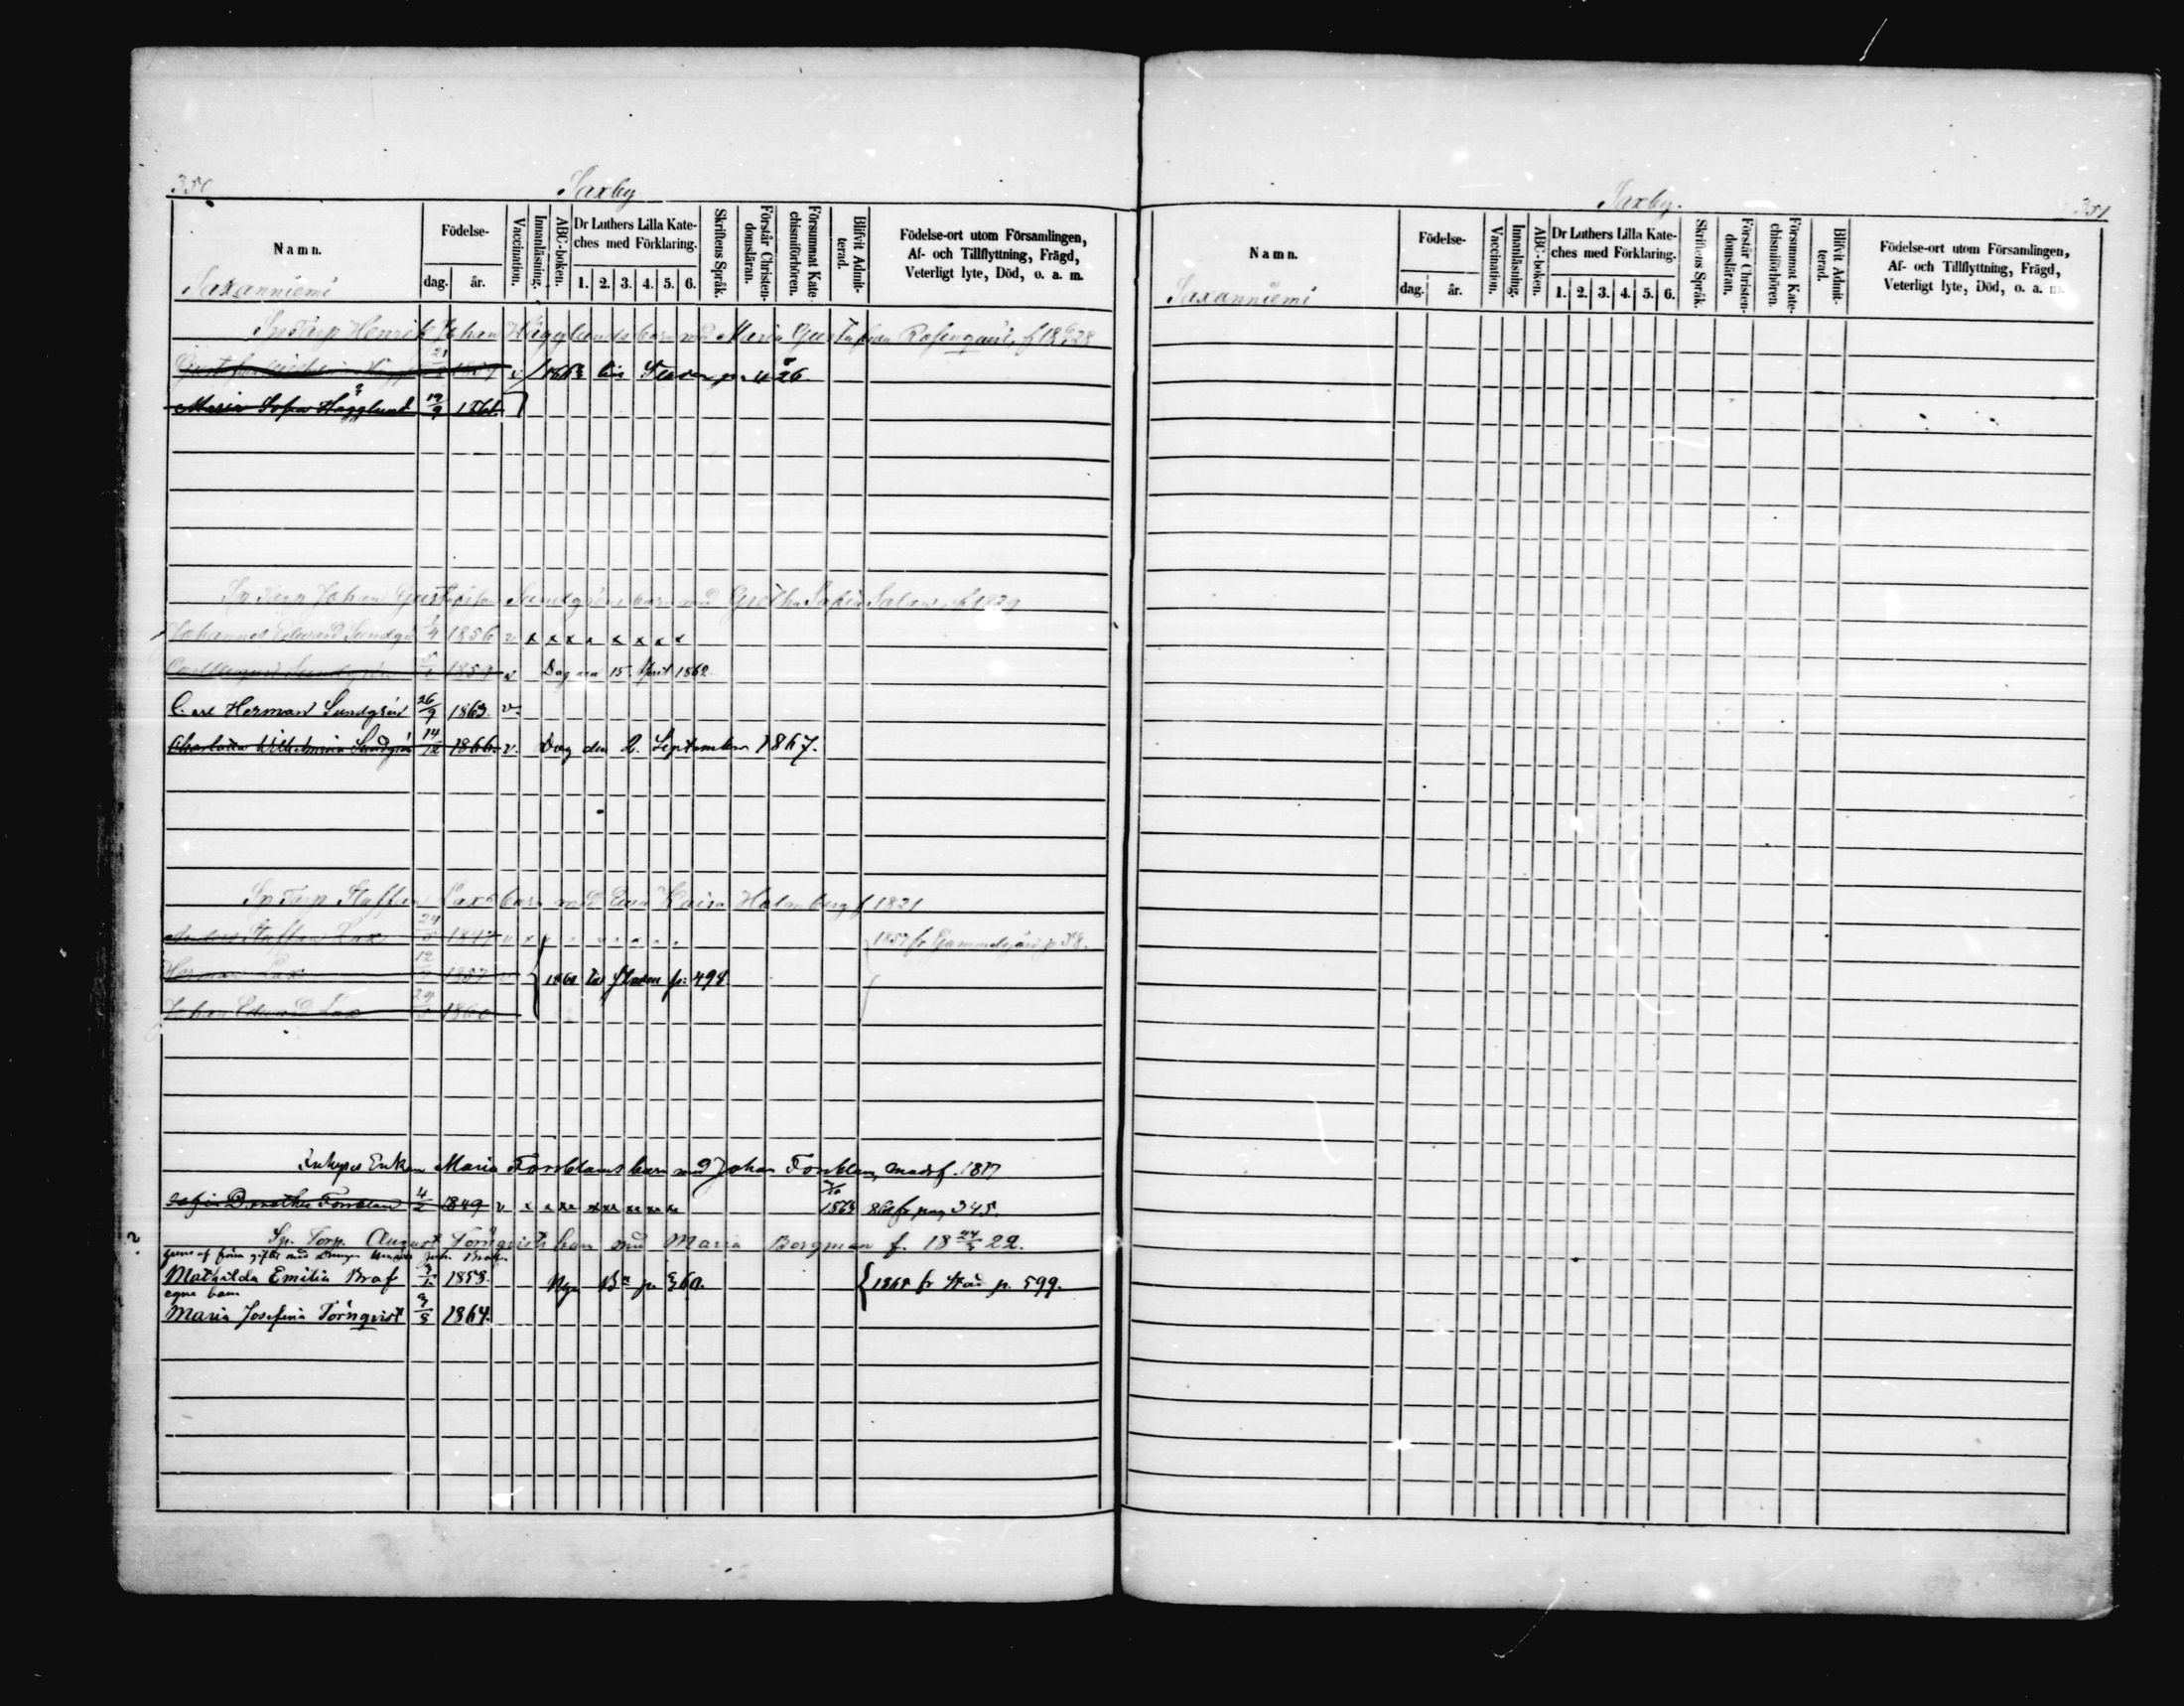 350
Saxby
Namn.
Födelse-
dag.
år.
Vaccination.
Innanläsning.
ABC-boken.
Dr Luthers Lilla Kate-
ches med Förklaring.
1. 2. 3. 4. 5. 6.
Skriftens Språk.
Förstår Christen-
domsläran.
Försummat Kate-
chismiförhören.
Blifvit Admit-
terad.
Födelse-ort utom Församlingen,
Af- och Tillflyttning, Frägd,
Veterligt lyte, Död, o. a. m.
Saxanniemi
Sp Torp Henrik Johan Hägglunds barn med Maria Gustafsdr Rosenqvist, f 18 28
v 1863 till p. 426.
Maria Sofia Hägglund 19/9 1861
Sp Torp Johan Gustafsson Sundgrens barn med Gretha Sofia 1829
Johannes Edvard Sundgr 1856 v x x x x x x x x
1859 v Dog den 15 April 1862
Carl Herman Sundgrén 26/9 1863. v.
Charlotta Wilhelmina Sundgrén 14/12 1866. v. Dog den 2. September 1867.
Sp Torp Staffan Lax barn med Eva Kaisa Holmberg f 1821
Staffan Lax 24 1847 v x 1857 fr Gammelgård p 58.
Herman Lax 12 1857 till p: 498
Johan Edvard Lax 24 1860
Inhyses Enkan Maria Forsblams barn med Johan Forsblom, mod. f. 1817
Sofia Dorothea Forsblom 4/2 1849 v x x xx xx xx xx xx 1863 fr pag 345.
Sp. Torp. August Törnqvists barn med Maria Borgman f. 18 24/3 22.
Mathilda Emilia Braf 1853. Nya B. p. 360. 1865 fr p. 599.
egna barn
Maria Josefina Törnqvist 3/5 1864.
Saxby.
351
Namn.
Födelse-
dag.
år.
Vaccination.
Innanläsning.
ABC-boken.
Dr Luthers Lilla Kate-
ches med Förklaring.
1. 2. 3. 4. 5. 6.
Skriftens Språk.
Förstår Christen-
domsläran.
Försummat Kate-
chismiförhören.
Blifvit Admit-
terad.
Födelse-ort utom Församlingen,
Af- och Tillflyttning, Frägd,
Veterligt lyte, Död, o. a. m.
Saxanniemi